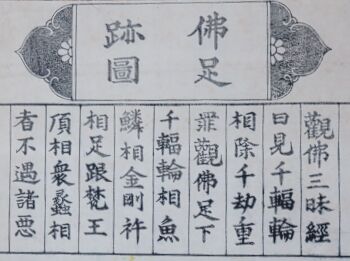 佛足
跡圖
觀佛三昧經
曰見千輻輪
相除千劫重
罪觀佛足下
千輻輪相魚
鱗相金剛杵
相足跟梵王
頂相衆蠡相
者不遇諸惡